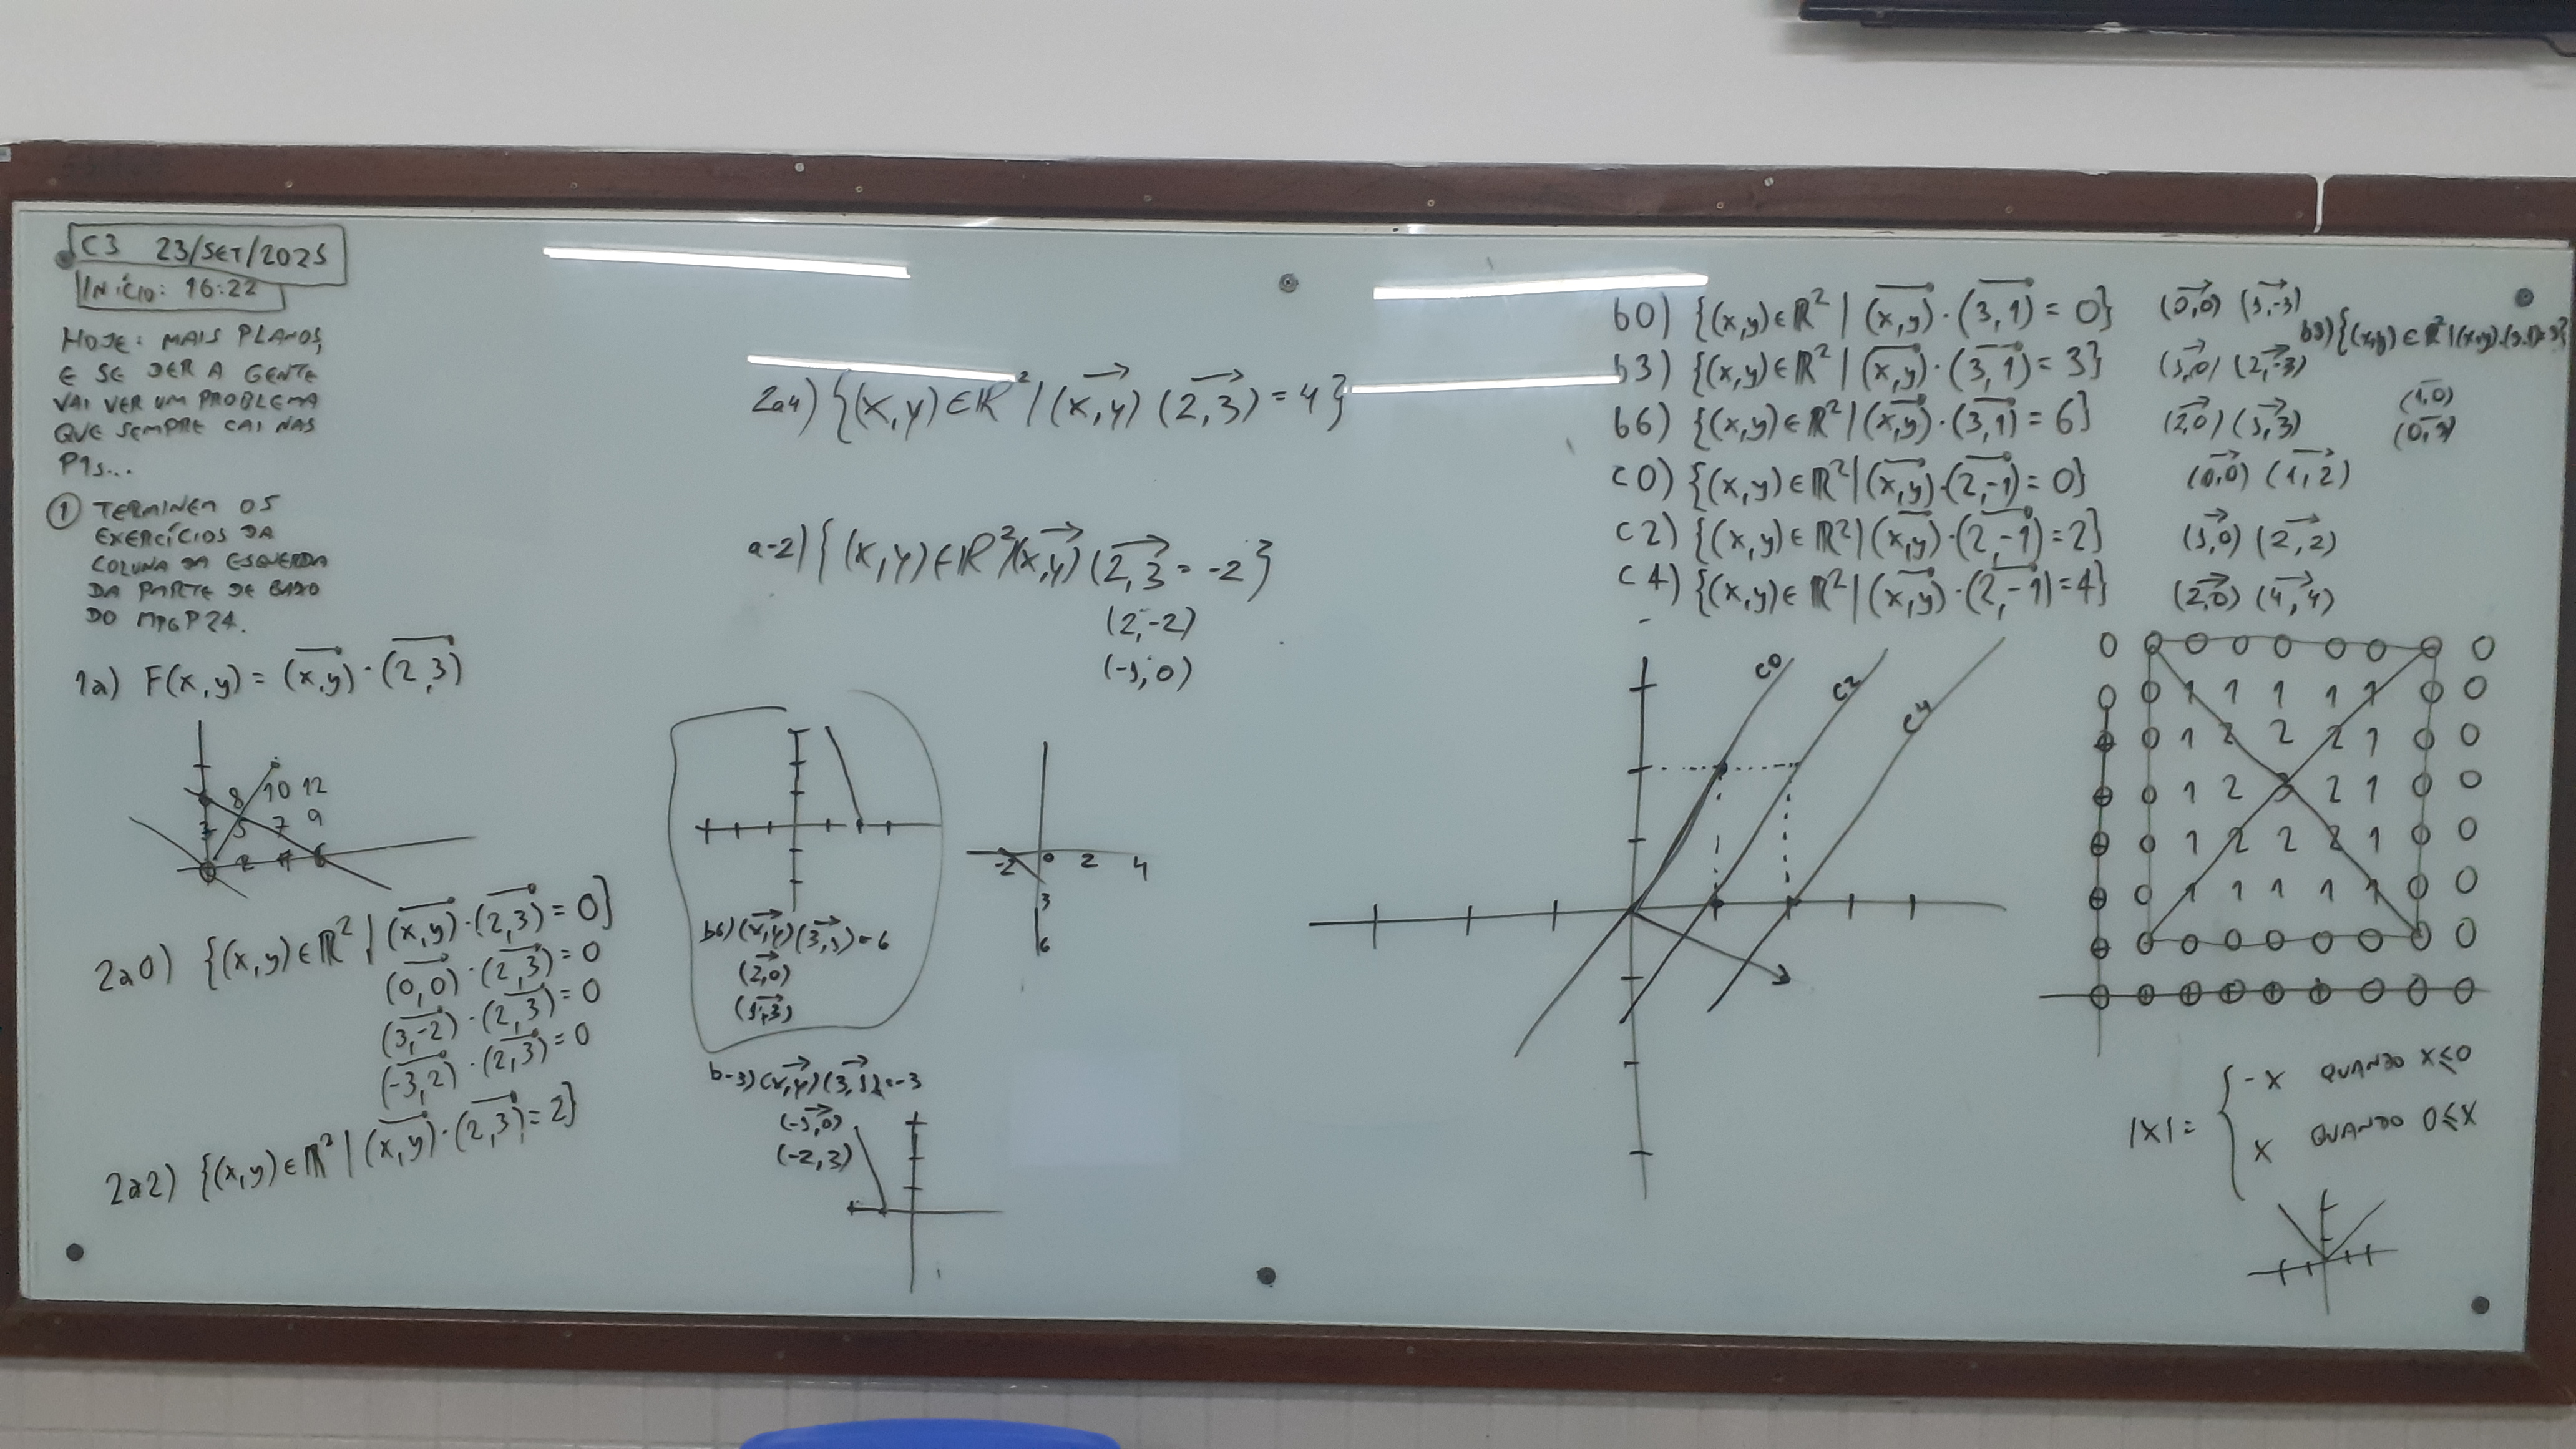 C3 23/SET/2025
INÍCIO: 16:22
HOJE: MAIS PLANOS,
E SE DER A GENTE
VAI VER UM PROBLEMA
QUE SEMPRE CAI NAS
P1s...
① TERMINEM OS
EXERCÍCIOS DA
COLUNA DA ESQUERDA
DA PARTE DE BAIXO
DO MPGP24.
1a) F(x,y) = (x,y)→ · (2,3)→
8 10 12
3 5 7 9
0 2 4 6
2a0) {(x,y) ∈ ℝ² | (x,y)→ · (2,3)→ = 0}
(0,0)→ · (2,3)→ = 0
(3,-2)→ · (2,3)→ = 0
(-3,2)→ · (2,3)→ = 0
2a2) {(x,y) ∈ ℝ² | (x,y)→ · (2,3)→ = 2}
2a4) {(x,y) ∈ ℝ² | (x,y)→ (2,3)→ = 4}
a-2) {(x,y) ∈ ℝ² | (x,y)→ (2,3→ = -2}
(2,-2)
(-1,0)
b6) (x,y)→ (3,1)→ = 6
(2,0)→
(1,3)→
-2 0 2 4
3
6
b-3) (x,y)→ (3,1)→ = -3
(-1,0)→
(-2,3)
b0) {(x,y) ∈ ℝ² | (x,y)→ · (3,1)→ = 0} (0,0)→ (1,-3)→
b3) {(x,y) ∈ ℝ² | (x,y)→ · (3,1)→ = 3} (1,0)→ (2,-3)→
b6) {(x,y) ∈ ℝ² | (x,y)→ · (3,1)→ = 6} (2,0)→ (1,3)→
c0) {(x,y) ∈ ℝ² | (x,y)→ · (2,-1)→ = 0} (0,0)→ (1,2)→
c2) {(x,y) ∈ ℝ² | (x,y)→ · (2,-1)→ = 2} (1,0)→ (2,2)→
c4) {(x,y) ∈ ℝ² | (x,y)→ · (2,-1)→ = 4} (2,0)→ (4,4)→
b3) {(x,y) ∈ ℝ² | (x,y) · (3,1) = 3}
(1,0)
(0,3)
c0 c2 c4
0 0 0 0 0 0 0 0 0
0 0 1 1 1 1 1 0 0
0 0 1 2 2 2 1 0 0
0 0 1 2 3 2 1 0 0
0 0 1 2 2 2 1 0 0
0 0 1 1 1 1 1 0 0
0 0 0 0 0 0 0 0 0
0 0 0 0 0 0 0 0 0
|x| = { -x QUANDO x≤0
x QUANDO 0≤x